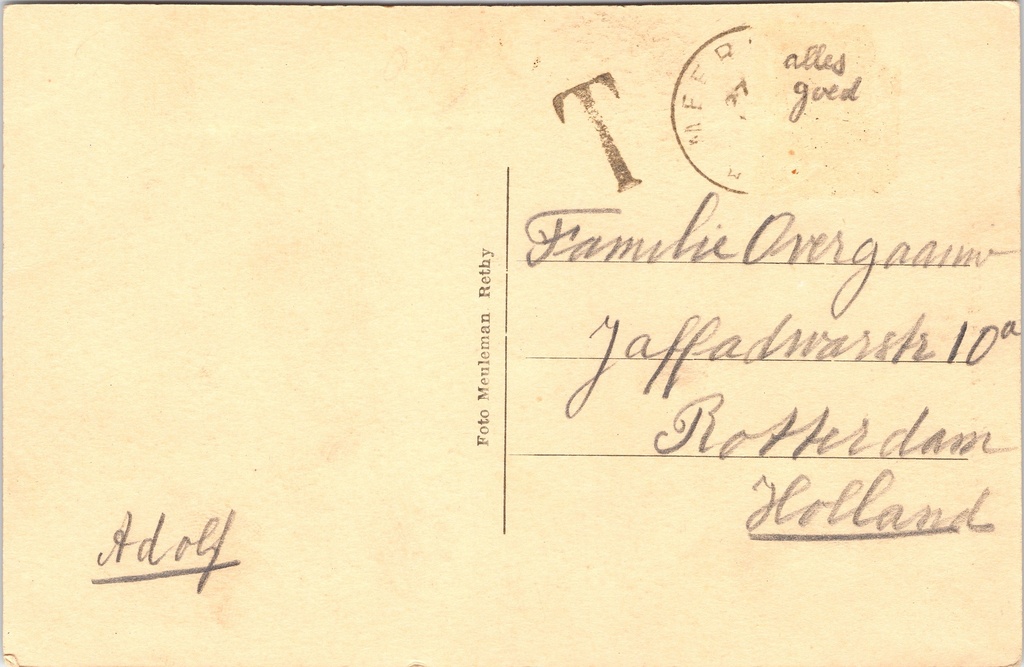 T
MEER
37
alles
goed
Familie Overgaauw
Jaffadwarstr 10a
Rotterdam
Holland
Foto Meuleman Rethy
Adolf